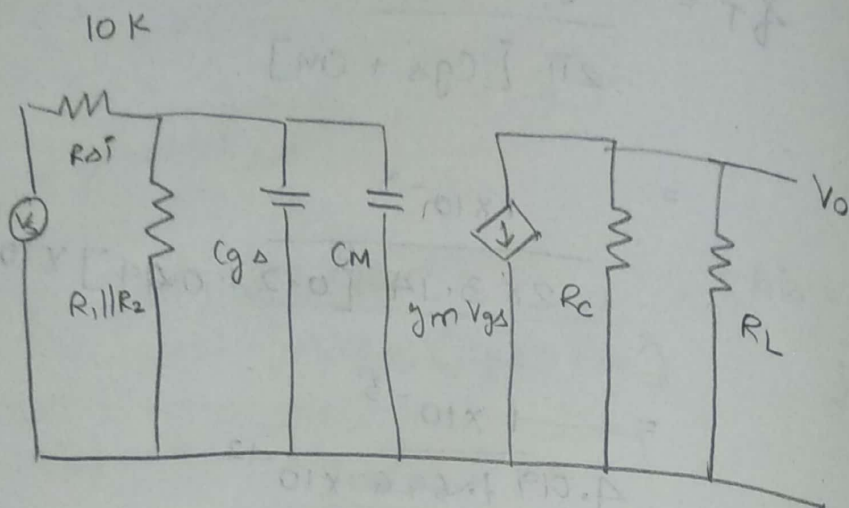 10 K
Rsi
R1||R2
Cgs
CM
gm Vgs
RC
RL
Vo